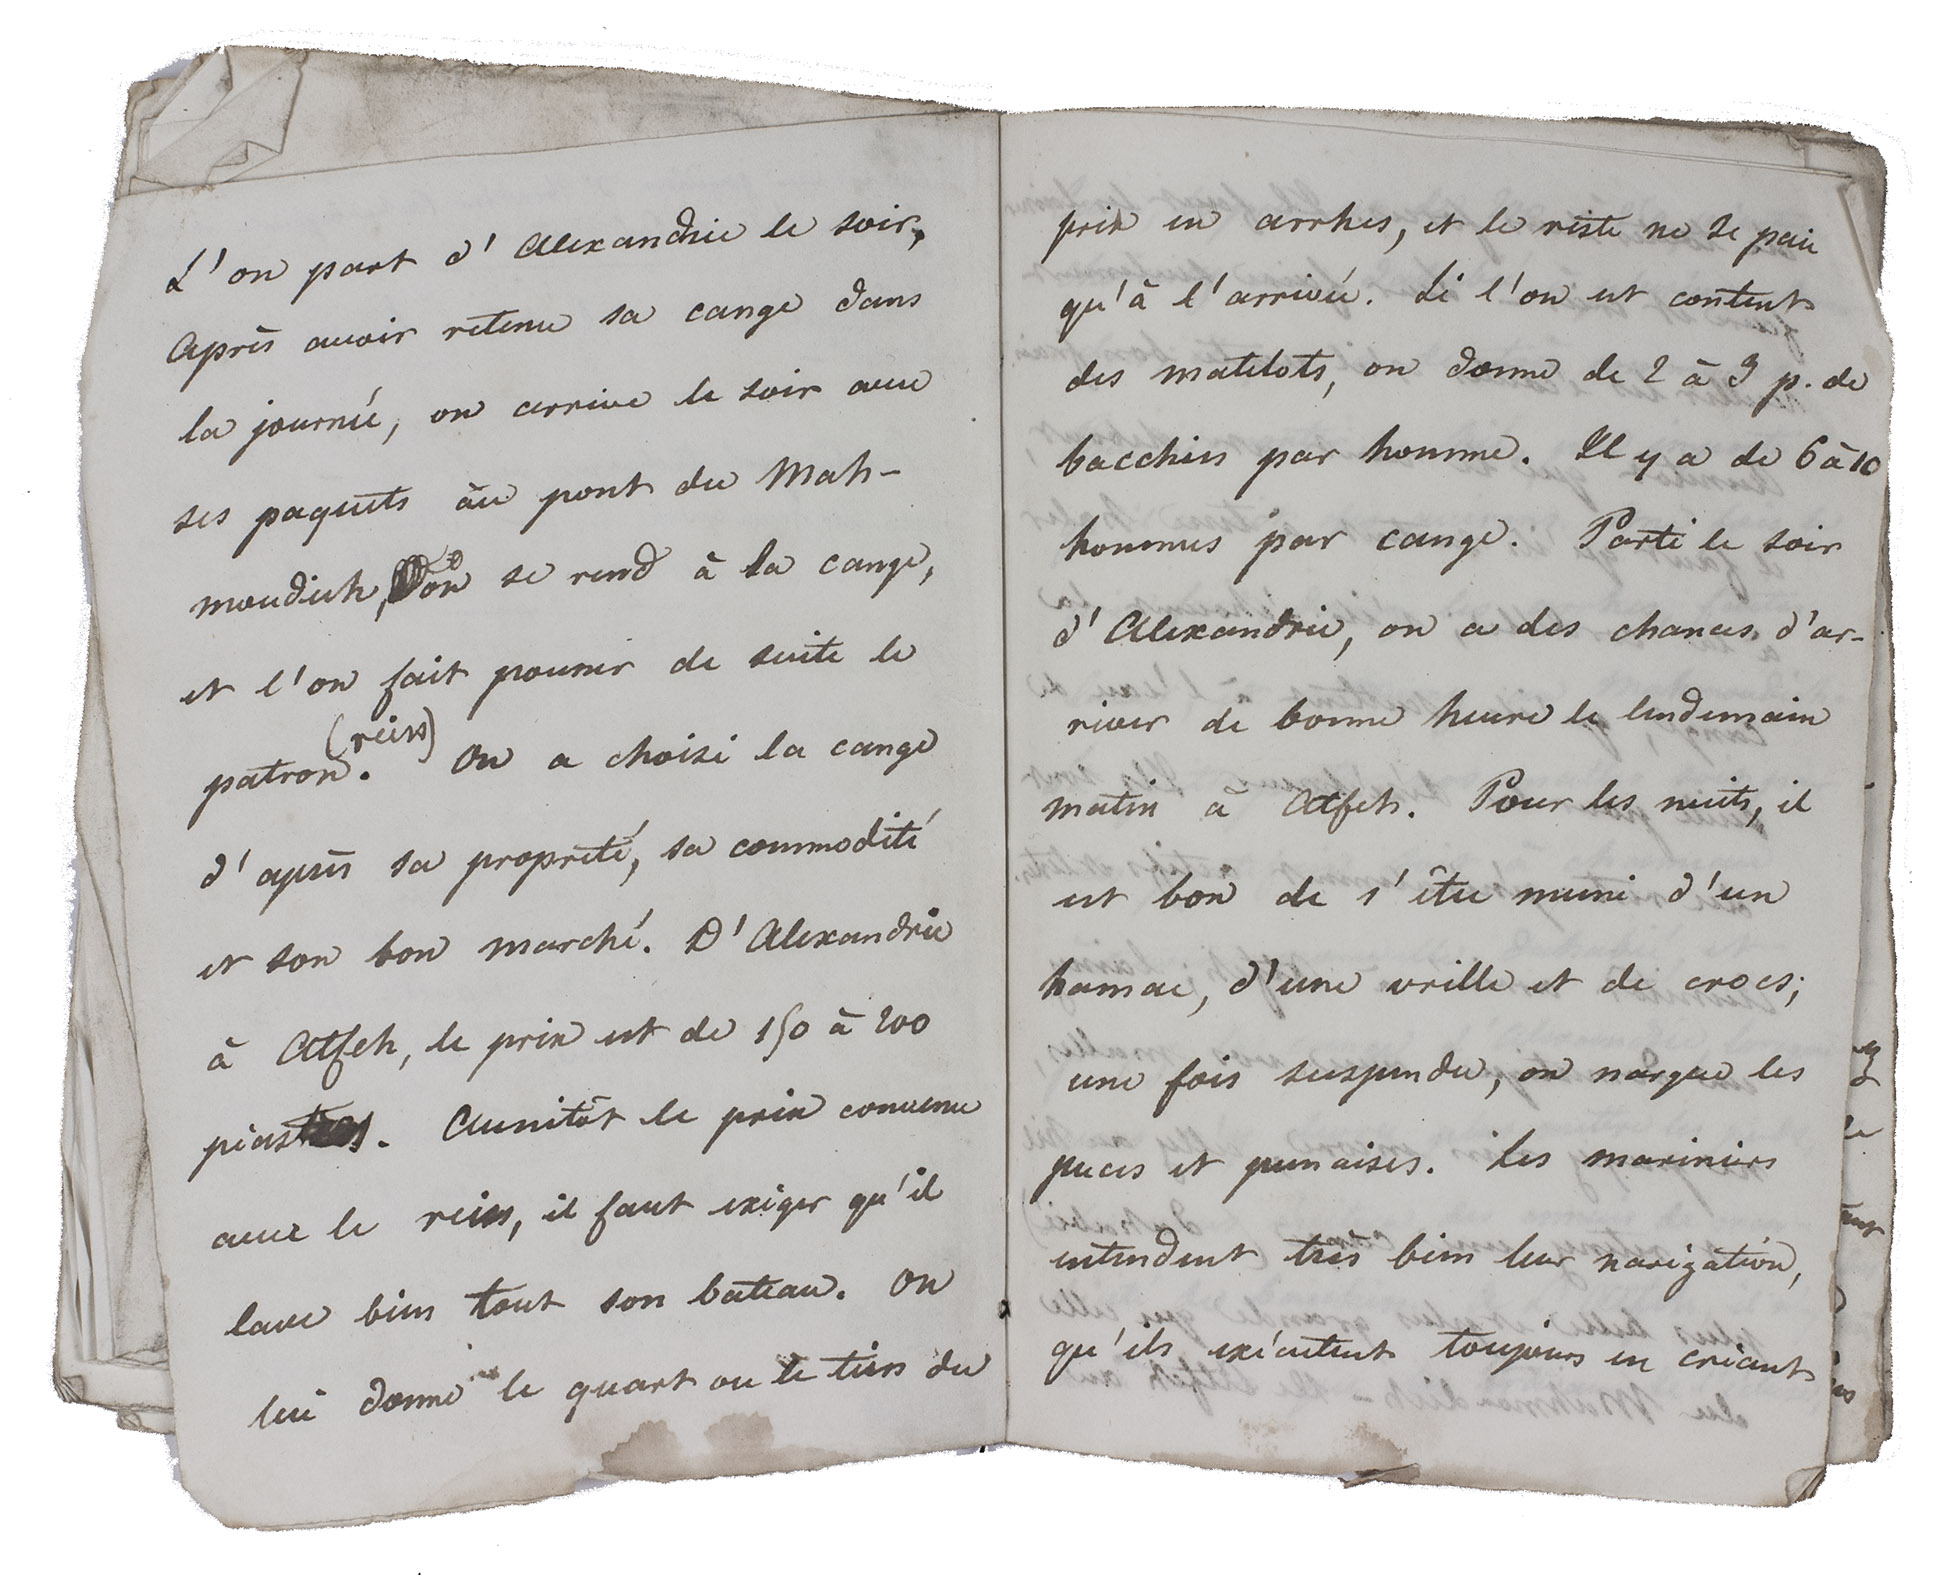 L'on part d'Alexandrie le soir,
Après avoir retenu sa cange dans
la journée, on arrive le soir avec
ses paquets au pont du Mah-
moudieh, on se rend à la cange,
et l'on fait pousser de suite le
(reiss)
patron. On a choisi la cange
d'après sa propreté, sa commodité
et son bon marché. D'Alexandrie
à Atfeh, le prix est de 150 à 200
piastres. Aussitôt le prix convenu
avec le reiss, il faut exiger qu'il
lave bien tout son bateau. On
lui donne le quart ou le tiers du
prix en arrhes, et le reste ne se paie
qu'à l'arrivée. Si l'on est content
des matelots, on donne de 2 à 3 p. de
bacchies par homme. Il y a de 6 à 10
hommes par cange. Parti le soir
d'Alexandrie, on a des chances d'ar-
river de bonne heure le lendemain
matin à Atfeh. Pour les nuits, il
est bon de s'être muni d'un
hamac, d'une vrille et de crocs;
une fois suspendu, on nargue les
puces et punaises. Les mariniers
entendent très bien leur navigation,
qu'ils exécutent toujours en criant